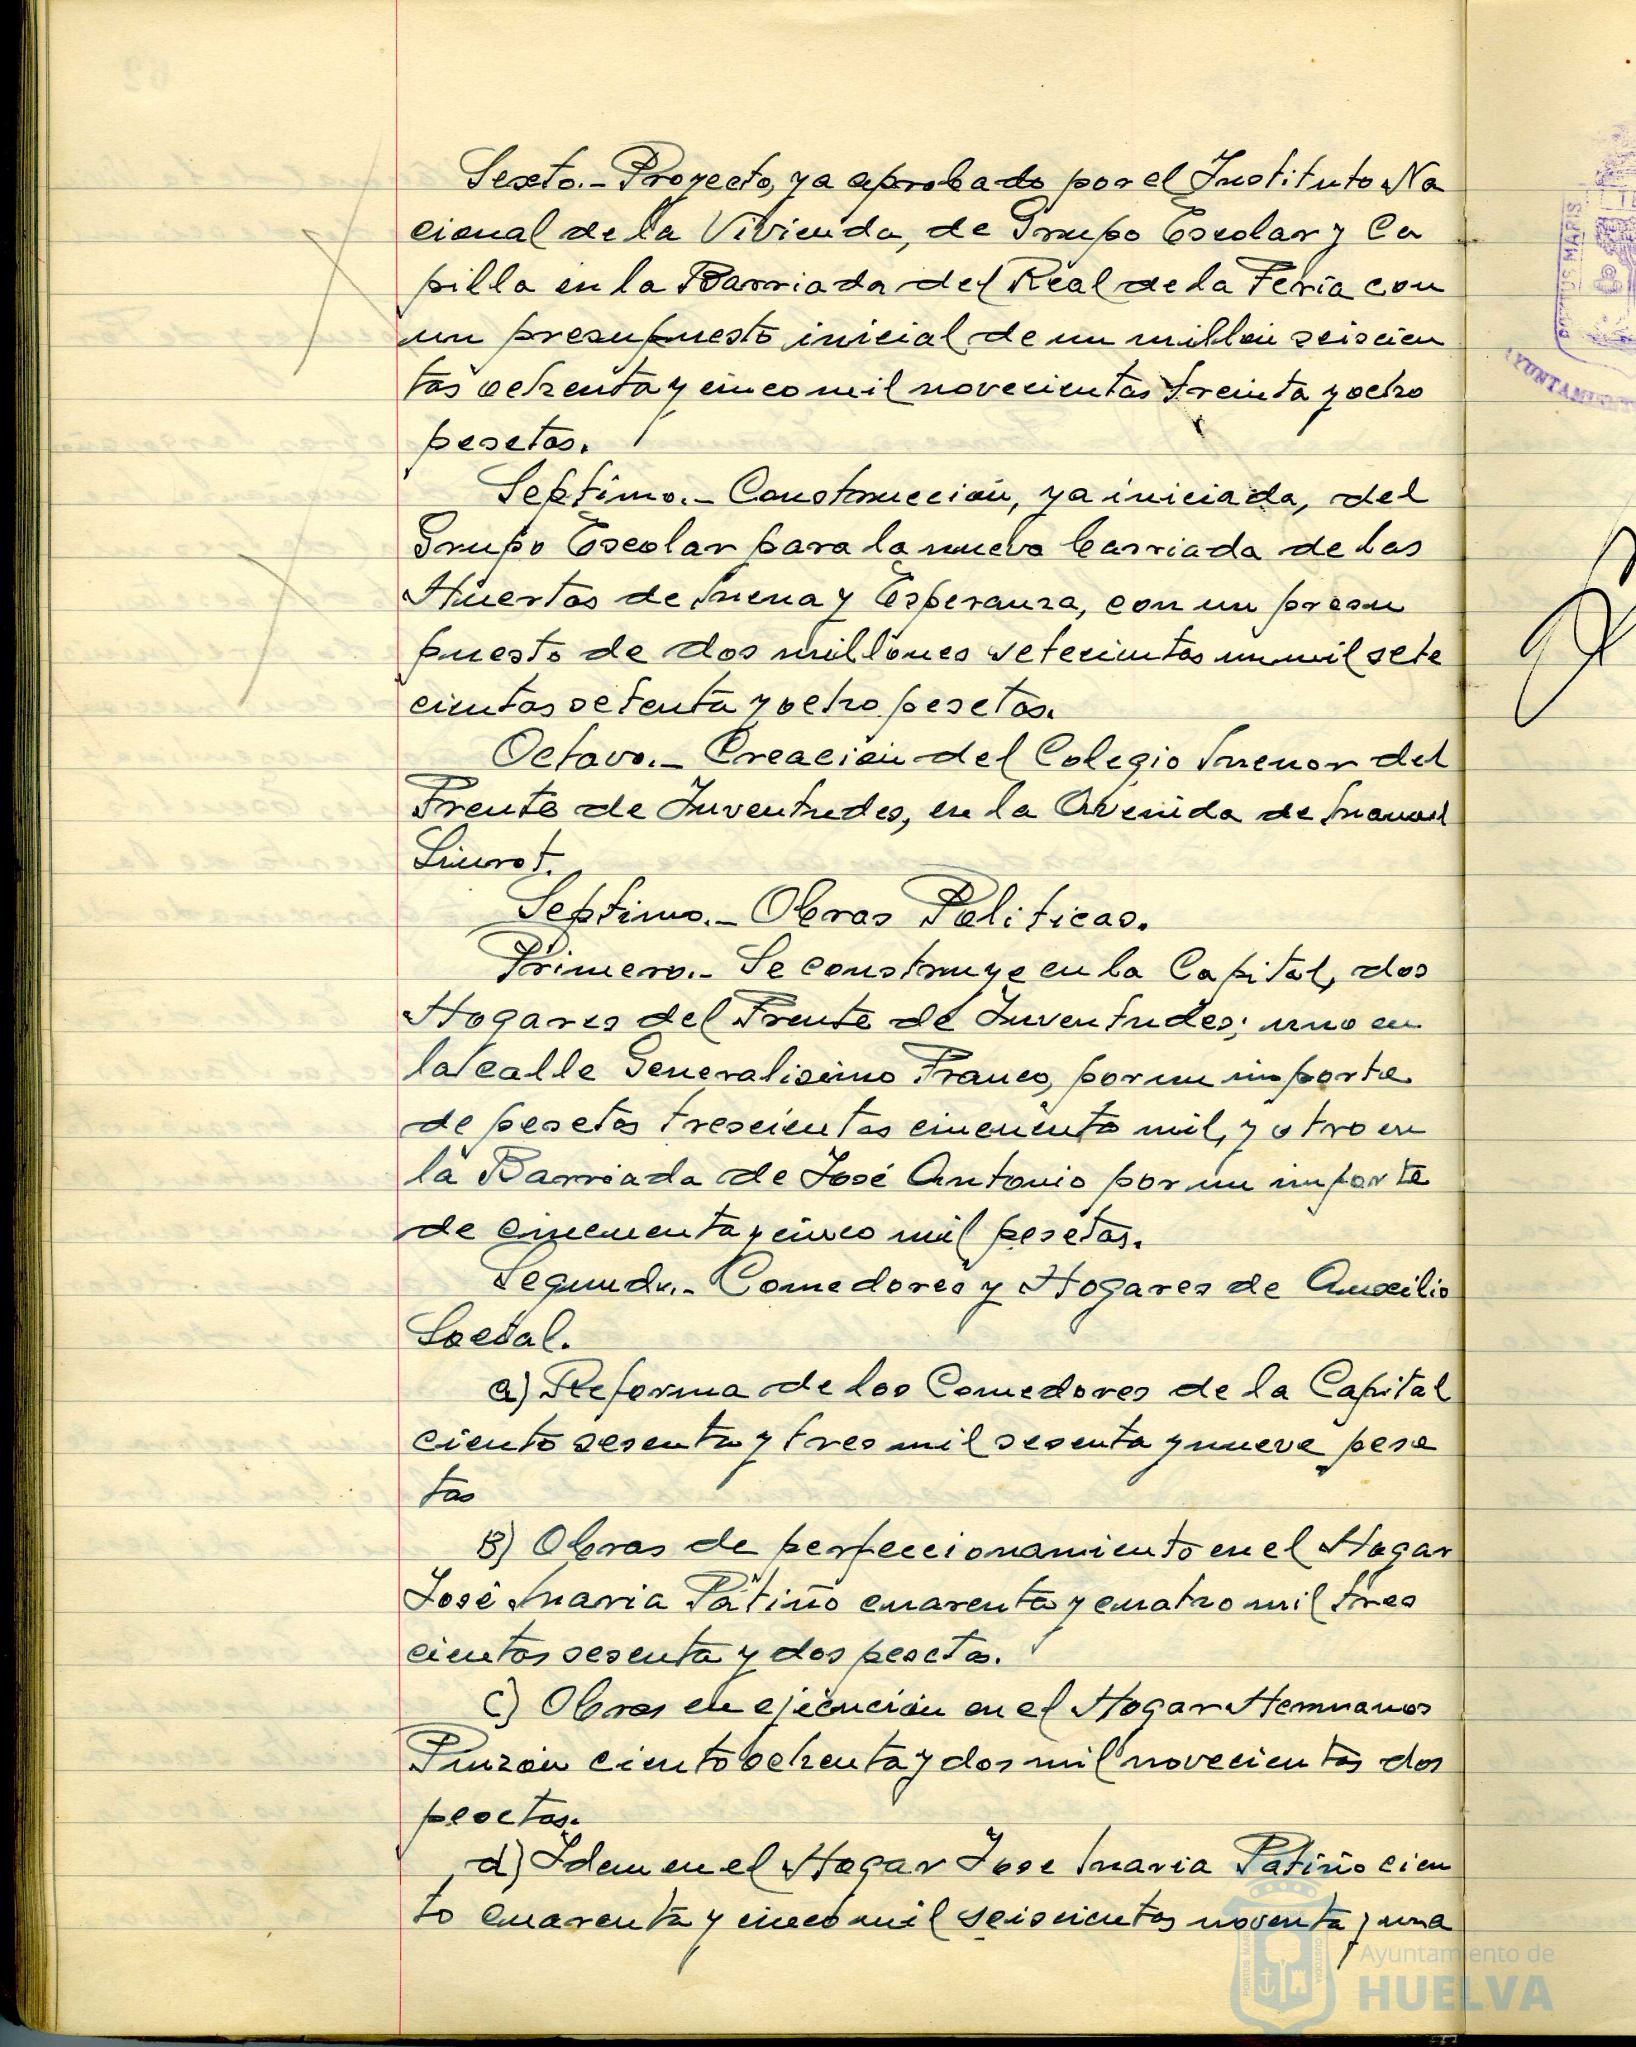 Sexto.- Proyecto, ya aprobado por el Instituto Na
cional de la Vivienda, de Grupo Escolar y Ca
pilla en la Barriada del Real de la Feria con
un presupuesto inicial de un millón seiscien
tas ochenta y cinco mil novecientas treinta y ocho
pesetas.
Septimo.- Construcción, ya iniciada, del
Grupo Escolar para la nueva barriada de las
Huertas de Mena y Esperanza, con un presu
puesto de dos millones setecientas un mil sete
cientas setenta y ocho pesetas.
Octavo.- Creación del Colegio Menor del
Frente de Juventudes, en la Avenida de Manuel
Siurot.
Septimo.- Obras Politicas.
Primero.- Se construye en la Capital, dos
Hogares del Frente de Juventudes; uno en
la calle Generalisimo Franco, por un importe
de pesetas trescientas cincuenta mil, y otro en
la Barriada de José Antonio por un importe
de cincuenta y cinco mil pesetas.
Segundo.- Comedores y Hogares de Auxilio
Social.
a) Reforma de los Comedores de la Capital
ciento sesenta y tres mil sesenta y nueve pese
tas
B) Obras de perfeccionamiento en el Hogar
José Maria Patiño cuarenta y cuatro mil tres
cientas sesenta y dos pesetas.
C) Obras en ejecución en el Hogar Hermanos
Pinzón ciento ochenta y dos mil novecientas dos
pesetas.
d) Idem en el Hogar Jose Maria Patiño cien
to cuarenta y cinco mil seiscientas noventa y una
PORTUS MARIS
AYUNTAMIENTO
PORTUS MARIS
CUSTODIA
Ayuntamiento de
HUELVA